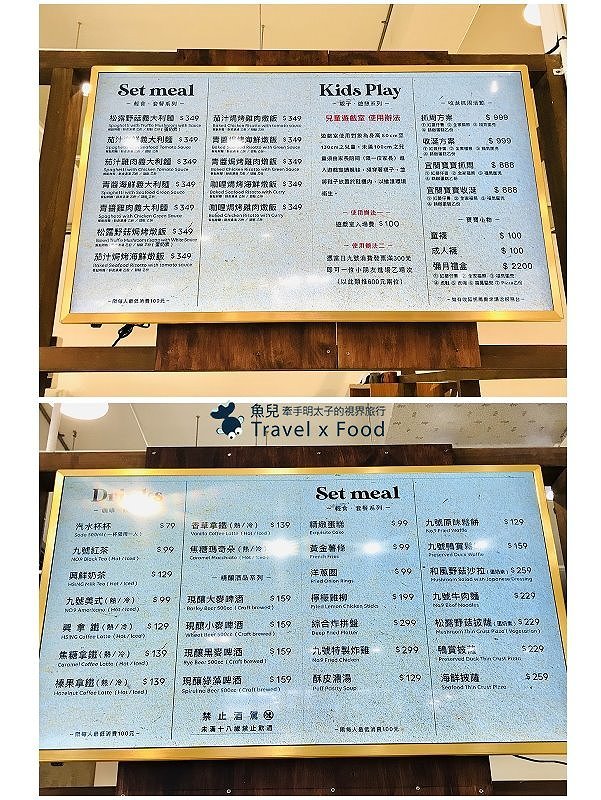 Set meal
－ 輕食．套餐系列 －
松露野菇義大利麵 $349
Spaghetti with Truffle Mushrooms with Sauce
茄汁海鮮義大利麵 $349
Spaghetti with Seafood Tomato Sauce
茄汁雞肉義大利麵 $349
Spaghetti with Chicken Tomato Sauce
青醬海鮮義大利麵 $349
Spaghetti with Seafood Green Sauce
青醬雞肉義大利麵 $349
Spaghetti with Chicken Green Sauce
松露野菇焗烤燉飯 $349
Baked Truffle Mushroom risotto with White Sauce
茄汁焗烤海鮮燉飯 $349
Baked Seafood Risotto with tomato sauce
－限每人最低消費100元－
茄汁焗烤雞肉燉飯 $349
Baked Chicken Risotto with tomato sauce
青醬焗烤海鮮燉飯 $349
Baked Seafood Risotto with Green Sauce
青醬焗烤雞肉燉飯 $349
Baked Chicken Risotto with Green Sauce
咖哩焗烤海鮮燉飯 $349
Baked Seafood Risotto with Curry
咖哩焗烤雞肉燉飯 $349
Baked Chicken Risotto with Curry
Kids Play
－ 親子．遊憩系列 －
兒童遊戲室 使用辦法
遊戲室使用對象為身高80cm至
120cm之兒童，未滿100cm之兒
入遊戲室請脫鞋，須穿著襪子，並
將鞋子放置於鞋櫃內，以維護環境
衛生。
－使用辦法一－
遊戲室入場費 $100
－使用辦法二－
憑當日九號消費發票滿300元
即可一位小朋友進場乙場次
(以此類推600元兩位)
－ 收涎抓周活動 －
抓周方案 $999
收涎方案 $999
宜蘭寶寶抓周 $888
宜蘭寶寶收涎 $888
－ 寶寶小物 －
童襪 $100
成人襪 $100
彌月禮盒 $2200
魚兒 牽手明太子的視界旅行
Travel x Food
Drinks
汽水杯杯 $79
Soda 500ml (一杯限用一人)
九號紅茶 $99
NO.9 Black Tea (Hot / Iced)
興鮮奶茶 $129
HSING Milk Tea (Hot / Iced)
九號美式(熱/冷) $99
NO.9 Americano (Hot / Iced)
興拿鐵(熱/冷) $129
HSING Coffee Latte (Hot / Iced)
焦糖拿鐵(熱/冷) $139
Caramel Coffee Latte (Hot / Iced)
榛果拿鐵(熱/冷) $139
Hazelnut Coffee Latte (Hot / Iced)
－限每人最低消費100元－
香草拿鐵(熱/冷) $139
Vanilla Coffee Latte (Hot / Iced)
焦糖瑪奇朵(熱/冷) $139
Caramel Macchiato (Hot / Iced)
－ 精釀酒品系列 －
現釀大麥啤酒 $159
Barley Beer 500cc (Craft brewed)
現釀小麥啤酒 $159
Wheat Beer 500cc (Craft brewed)
現釀黑麥啤酒 $159
Rye Beer 500cc (Craft brewed)
現釀綠藻啤酒 $159
Spirulina Beer 500cc (Craft brewed)
禁止酒駕
未滿十八歲禁止飲酒
Set meal
－ 輕食．套餐系列 －
精緻蛋糕 $99
Exquisite Cake
黃金薯條 $99
French Fries
洋蔥圈 $99
Fried Onion Rings
檸檬雞柳 $199
Fried Lemon Chicken Sticks
綜合炸拼盤 $299
Deep Fried Platter
九號特製炸雞 $299
No.9 Fried Chicken
酥皮濃湯 $129
Puff Pastry Soup
－限每人最低消費100元－
九號原味鬆餅 $129
No.9 Fried Waffle
九號鴨賞鬆餅 $159
Preserved Duck Waffle
和風野菇沙拉(蛋奶素) $259
Mushroom Salad with Japanese Dressing
九號牛肉麵 $229
No.9 Beef Noodles
松露野菇披薩(蛋奶素) $229
Mushroom Thin Crust Pizza (Vegetarian)
鴨賞披薩 $229
Preserved Duck Thin Crust Pizza
海鮮披薩 $259
Seafood Thin Crust Pizza